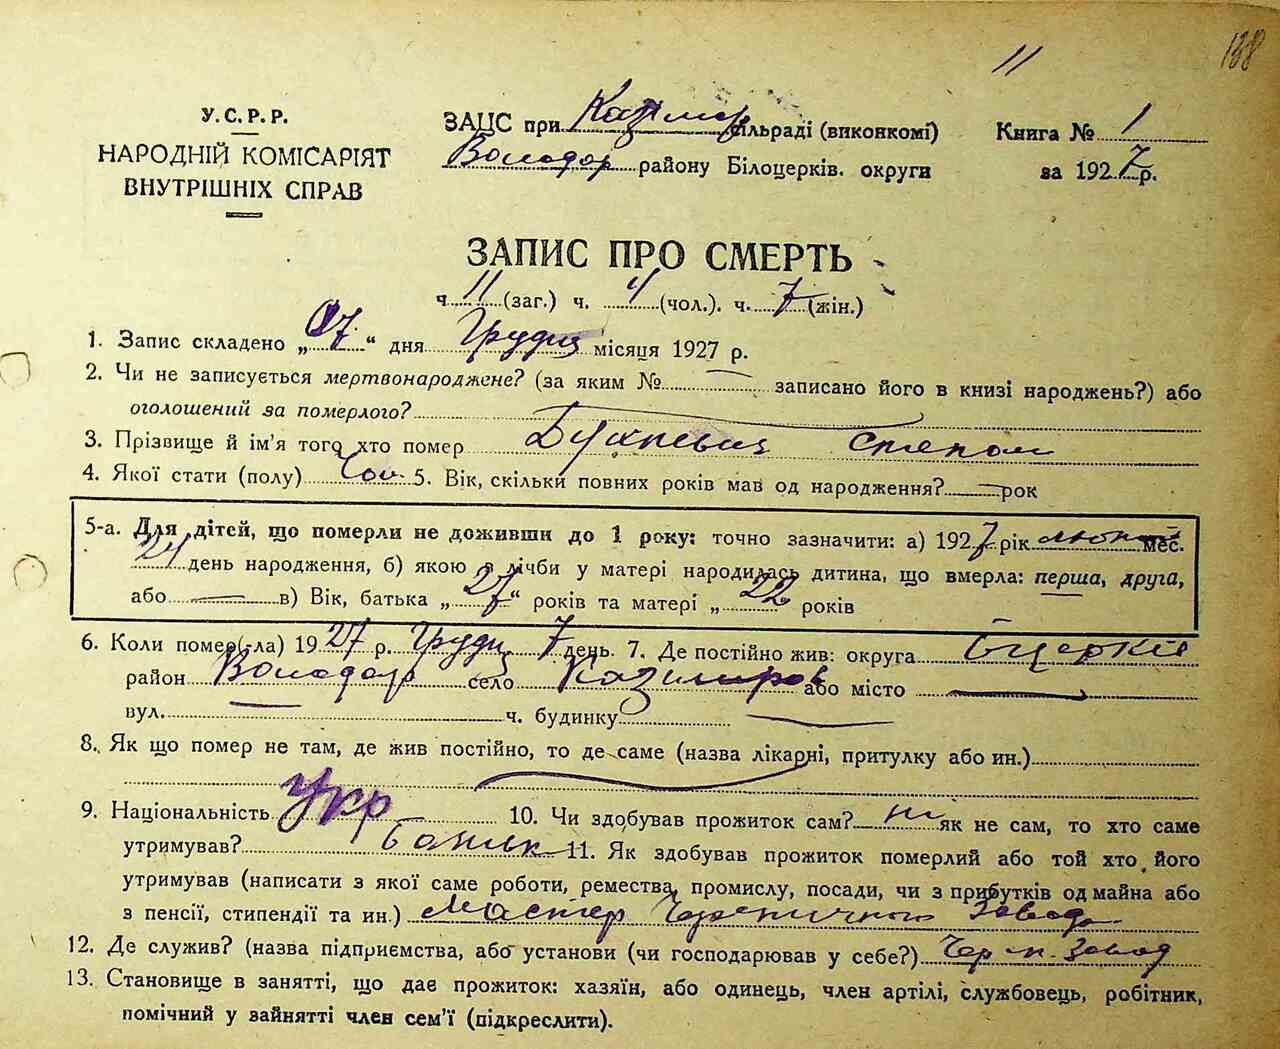 11
138
У.С.Р.Р.
НАРОДНІЙ КОМІСАРІЯТ
ВНУТРІШНІХ СПРАВ
ЗАЦС при Казимир сільраді (виконкомі)
Володар району Білоцерків. округи
Книга № 1
за 1927 р.
ЗАПИС ПРО СМЕРТЬ
ч 11 (заг.) ч. 4 (чол.). ч. 7 (жін.)
1. Запис складено „ 07 “ дня Грудня місяця 1927 р.
2. Чи не записується мертвонароджене? (за яким № записано його в книзі народжень?) або
оголошений за померлого?
3. Прізвище й ім'я того хто помер Степан
4. Якої стати (полу) Чол. 5. Вік, скільки повних років мав од народження? — рок
5-а. Для дітей, що померли не доживши до 1 року: точно зазначити: а) 1927 рік лютий мес.
24 день народження, б) якою з лічби у матері народилась дитина, що вмерла: перша, друга,
або — в) Вік, батька „ 27 “ років та матері „ 22 років
6. Коли помер(-ла) 1927 р. Грудн 7 день. 7. Де постійно жив: округа Бцерків
район Володар село Казимиров або місто —
вул. — ч. будинку —
8. Як що помер не там, де жив постійно, то де саме (назва лікарні, притулку або ин.)
9. Національність Укр 10. Чи здобував прожиток сам? ни як не сам, то хто саме
утримував? Батьк 11. Як здобував прожиток померлий або той хто його
утримував (написати з якої саме роботи, ремества, промислу, посади, чи з прибутків од майна або
з пенсії, стипендії та ин.) Мастер Черепичного Завода
12. Де служив? (назва підприємства, або установи (чи господарював у себе?) Чер п. Завод
13. Становище в занятті, що дає прожиток: хазяїн, або одинець, член артілі, службовець, робітник,
помічний у зайнятті член сем'ї (підкреслити).